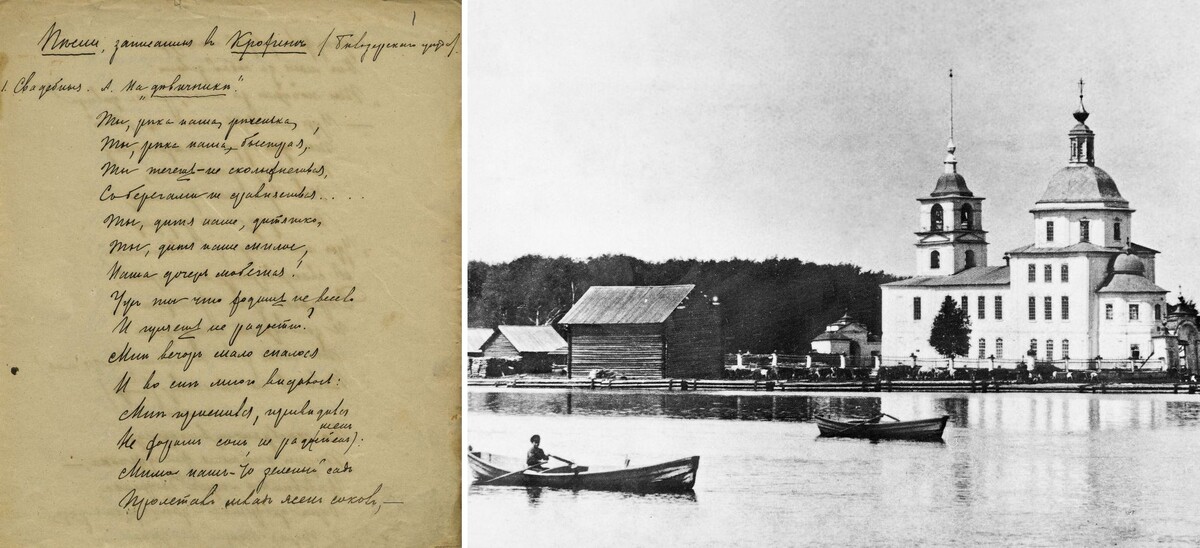 1
Пѣсни, записанныя въ Крохинѣ (Бѣлозерскаго уѣзда).
1. Свадебныя. А. „На дѣвичникѣ".
Ты, рѣка наша, рѣченька,
Ты, рѣка наша, быстрая,
Ты течешь-не сколыбнешься,
Со берегами не сравняешься....
Ты, дитя наше, дитятко,
Ты, дитя наше милое,
Наша дочерь любезная!
Ужъ ты что ходишь не весело
И гуляешь не радостно?
Мнѣ вечоръ мало спалося
И во снѣ много видѣлось:
Мнѣ
Не хорошъ сонъ, не радошенъ
Мимо нашъ-то зеленый садъ
Пролеталъ млядъ ясенъ соколъ,—